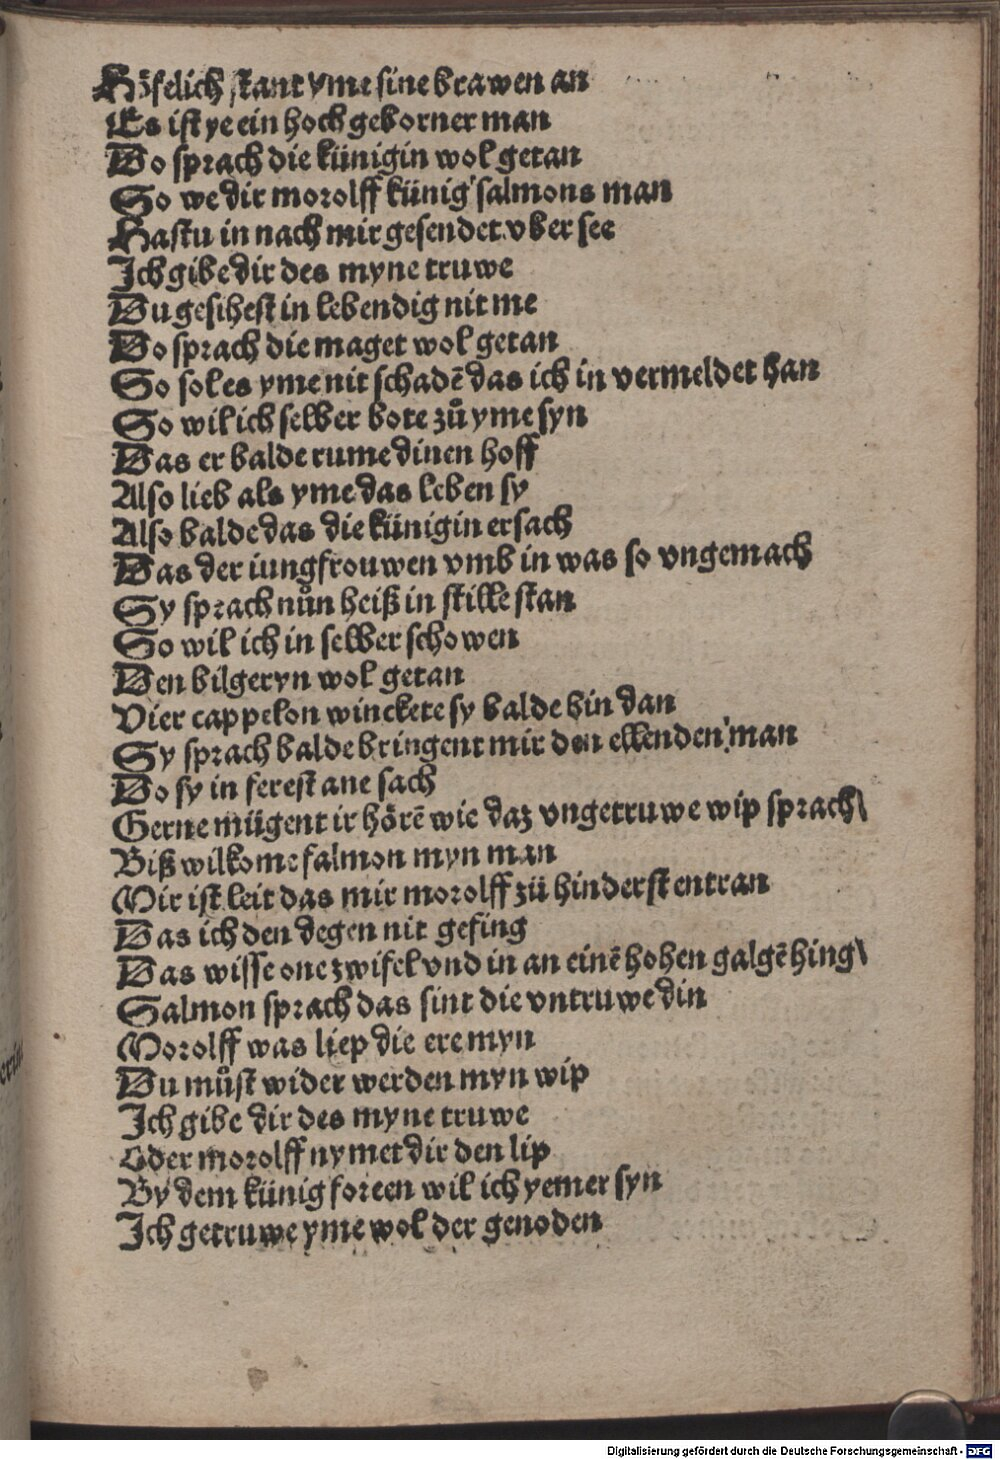 Höfelich stant yme sine brawen an
Es ist ye ein hoch geborner man
Do sprach die künigin wol getan
So we dir morolff künig salmons man
Hastu in nach mir gesendet vber see
Ich gibe dir des myne truwe
Du gesihest in lebendig nit me
Do sprach die maget wol getan
So sol es yme nit schadē das ich in vermeldet han
So wil ich selber bote zů yme syn
Das er balde rume dinen hoff
Also lieb als yme das leben sy
Also balde das die künigin ersach
Das der iungfrouwen vmb in was so vngemach
Sy sprach nůn heiß in stille stan
So wil ich in selber schowen
Den bilgeryn wol getan
Vier cappelon winckete sy balde hin dan
Sy sprach balde bringent mir den ellenden man
Do sy in ferest ane sach
Gerne mügent ir hörē wie daz vngetruwe wip sprach\
Biß wilkome salmon myn man
Mir ist leit das mir morolff zü hinderst entran
Das ich den degen nit gefing
Das wisse one zwifel vnd in an einē hohen galgē hing\
Salmon sprach das sint die vntruwe din
Morolff was liep die ere myn
Du můst wider werden myn wip
Ich gibe dir des myne truwe
Oder morolff nymet dir den lip
By dem künig foreen wil ich yemer syn
Ich getruwe yme wol der genoden
Digitalisierung gefördert durch die Deutsche Forschungsgemeinschaft - DFG